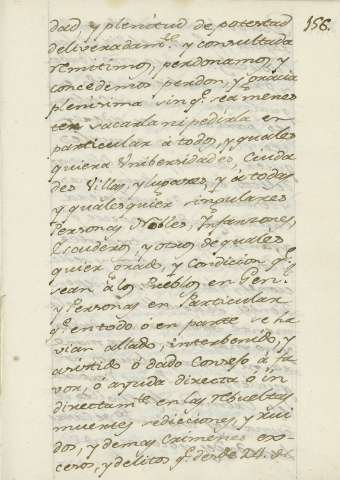 156.
dad, y plenitud de potestad
deliveradam.te y consultada
remitimos, perdonamos, y
concedemos perdon, y gracia
plenisima sin q.e sea menes
ter sacarla ni pedirla en
particular à todos, y quales
quiera Unibersidades, Ciuda
des Villas, y lugares, y à todas
y quales quier singulares
Personas Nobles, Infanzones,
Escuderos, y otros de quales
quier grado, y Condicion q.e
sean à los Pueblos en Gen.l
y Personas en Particular
q.e en todo ò en parte se ha
vian allado, interbenido, y
asistido ò dado Consejo à fa
vor, ò ayuda directa ò in
directam.te en las rebueltas
muertes sediciones, y rui
dos, y demas Crimenes ex-
cesos, y delitos q.e desde